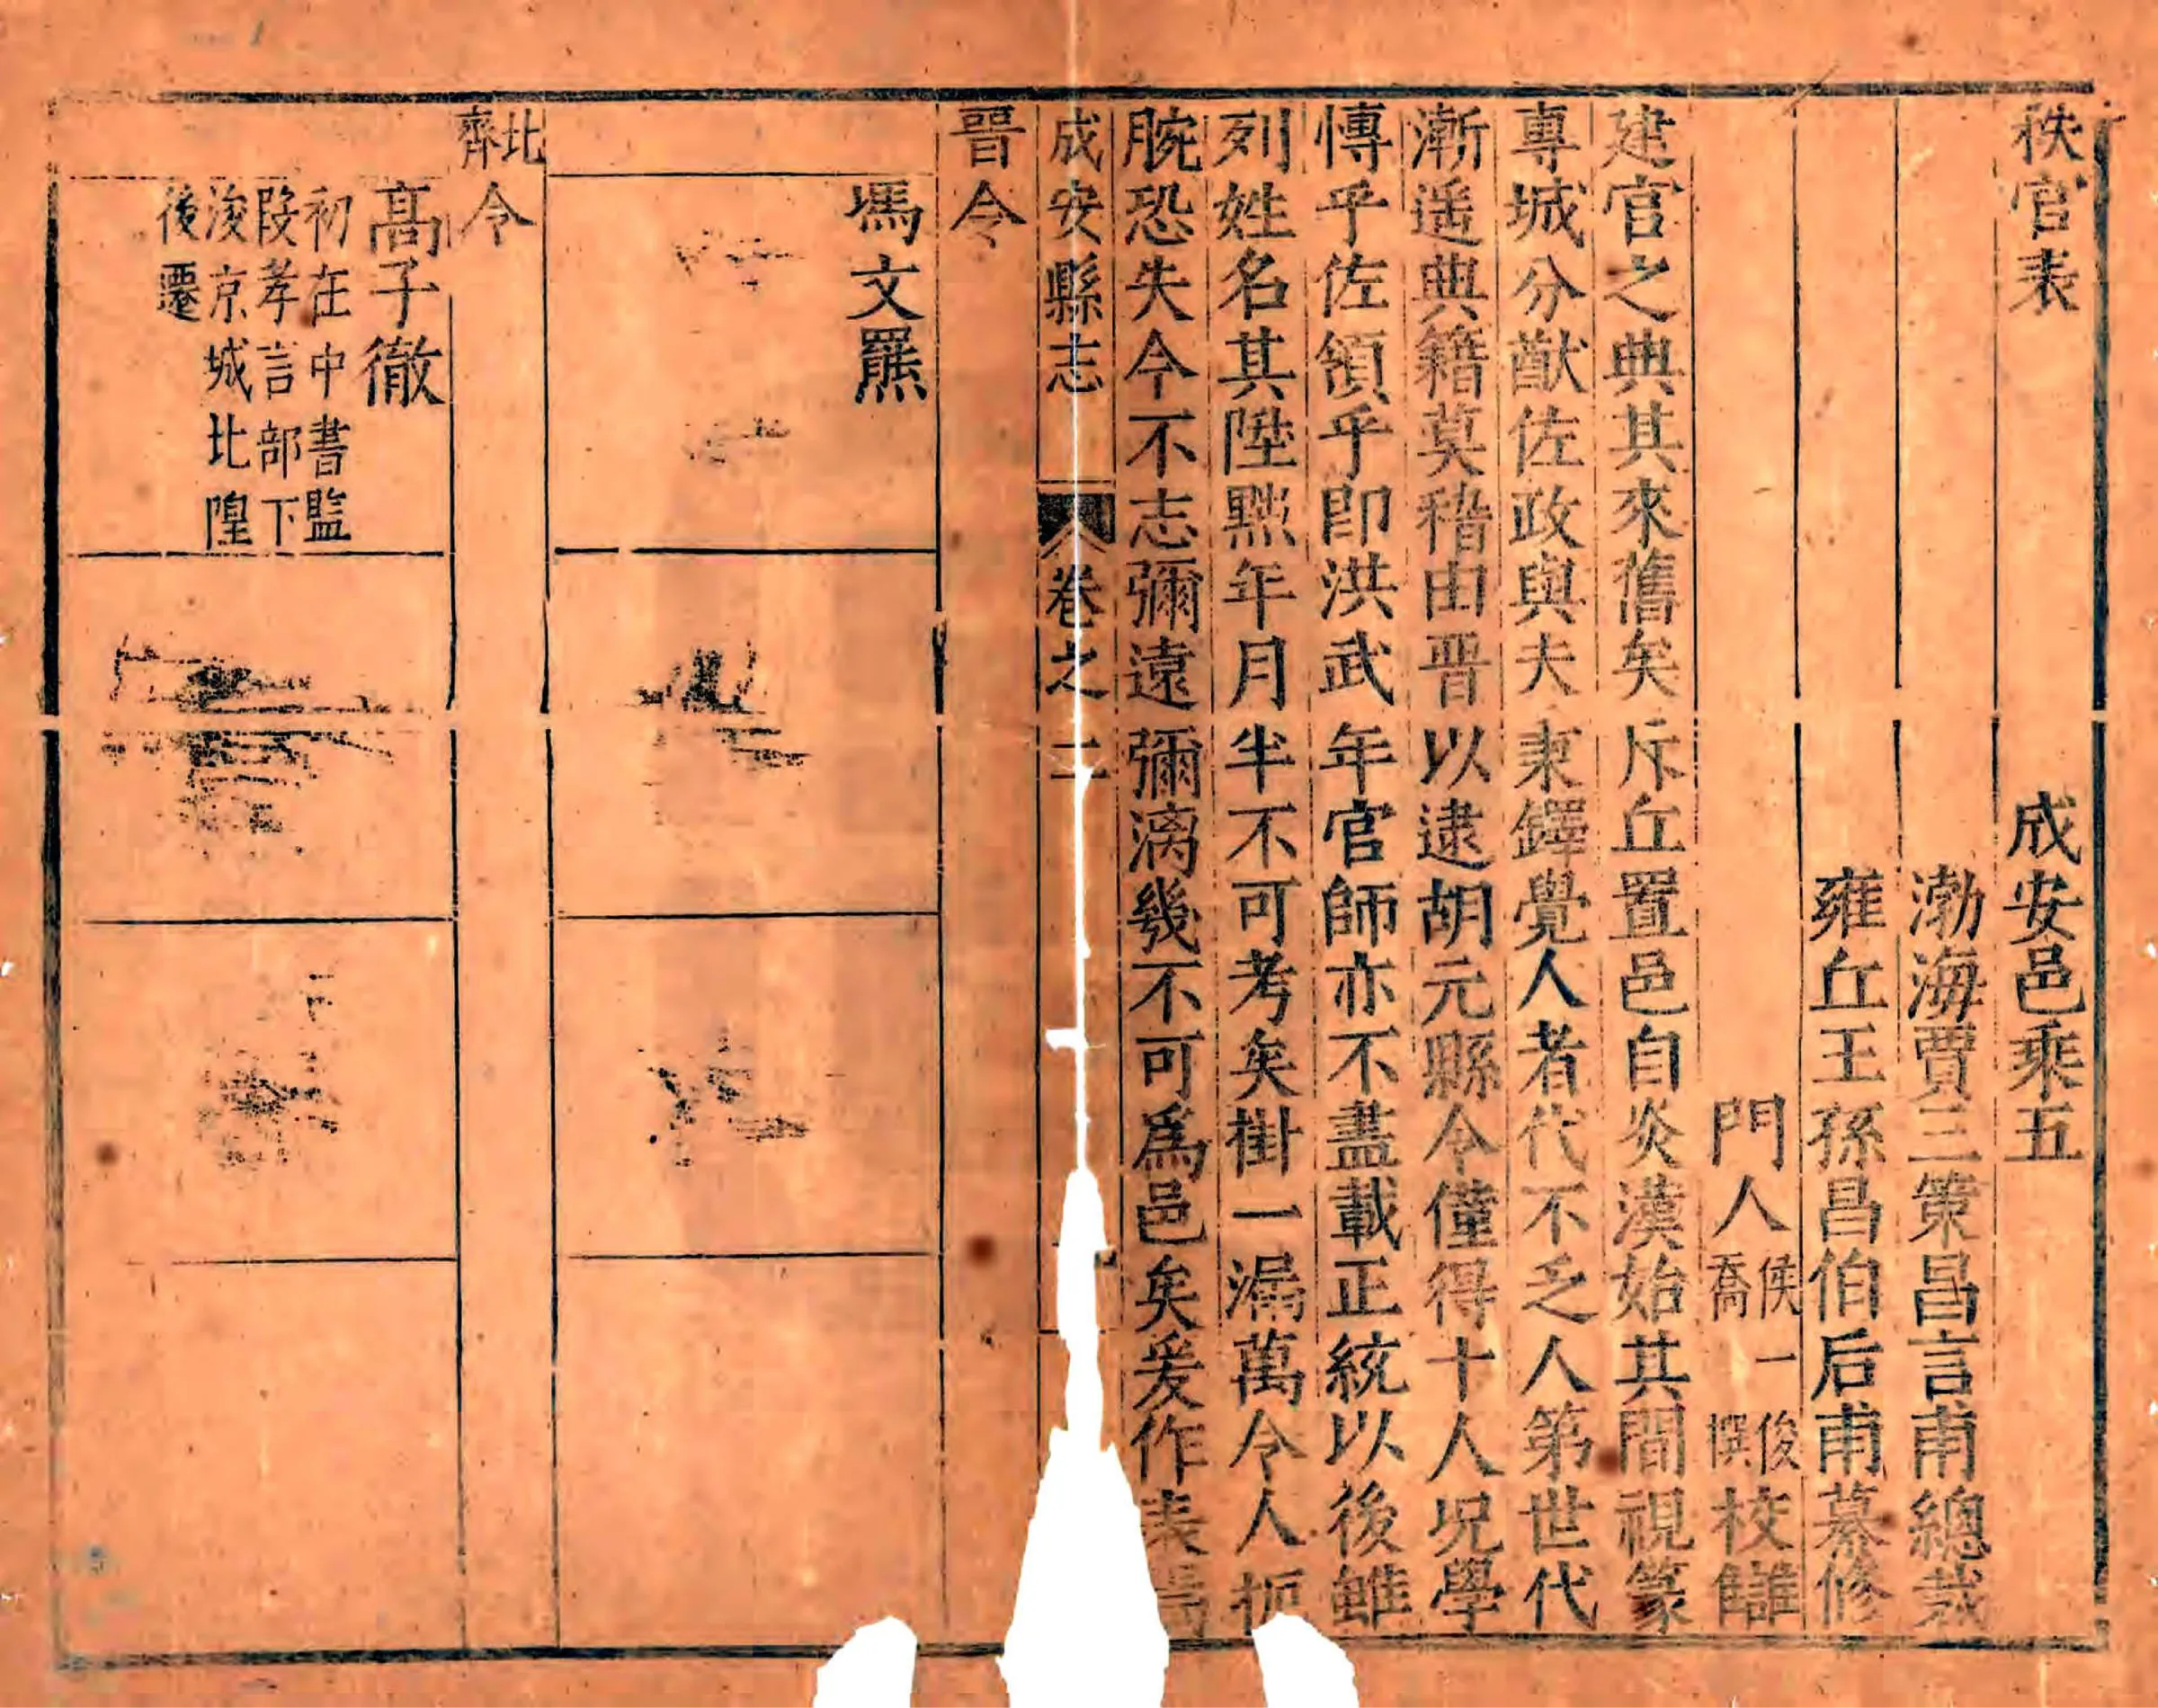 秩官表　成安邑乘五
渤海賈三策昌言甫總裁
雍丘王孫昌伯后甫纂修
門人侯一俊喬䙫校讎
建官之典其來舊矣斥丘置邑自炎漢始其間視篆
專城分猷佐政與夫秉鐸覺人者代不乏人第世代
漸遥典籍莫稽由晋以逮胡元縣令僅得十人况學
慱乎佐領乎即洪武年官師亦不盡載正統以後雖
列姓名其陞黜年月半不可考矣掛一漏萬令人扼
腕恐失今不志彌遠彌漓幾不可爲邑矣爰作表焉
成安縣志　卷之二
晋令
馮文羆
北齊令
髙子徹
初在中書監
叚孝言部下
浚京城北隍
後遷